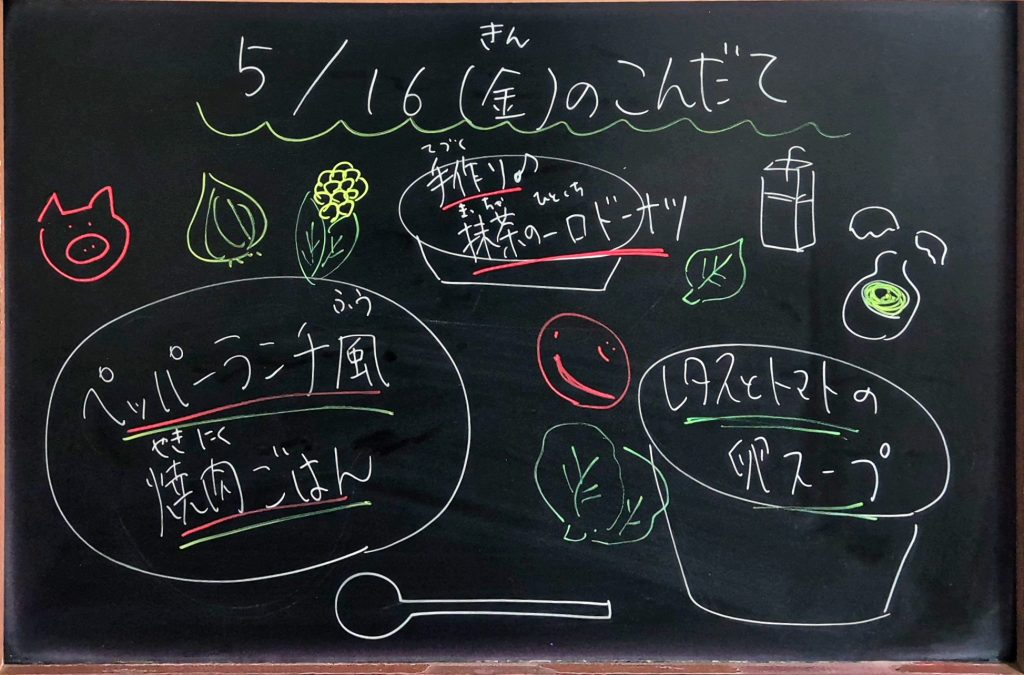 きん
5/16(金)のこんだて
てづく
手作り♪
まっちゃ ひとくち
抹茶の一口ドーナツ
ふう
ペッパーランチ風
やきにく
焼肉ごはん
レタスとトマトの
卵スープ